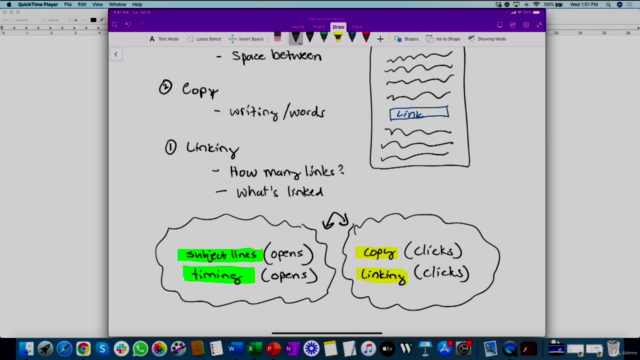 QuickTime Player File Edit View Window Help
100%
Wed 1:01 PM
9:41 AM Tue Jan 9
Home Insert Draw View
Text Mode Lasso Select Insert Space Shapes Ink to Shape Drawing Mode
- Space between
② Copy
- writing/words
Link
① Linking
- How many links?
- What's linked
subject lines (opens)
timing (opens)
copy (clicks)
linking (clicks)